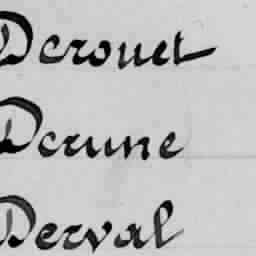 Derouet
Derune
Derval